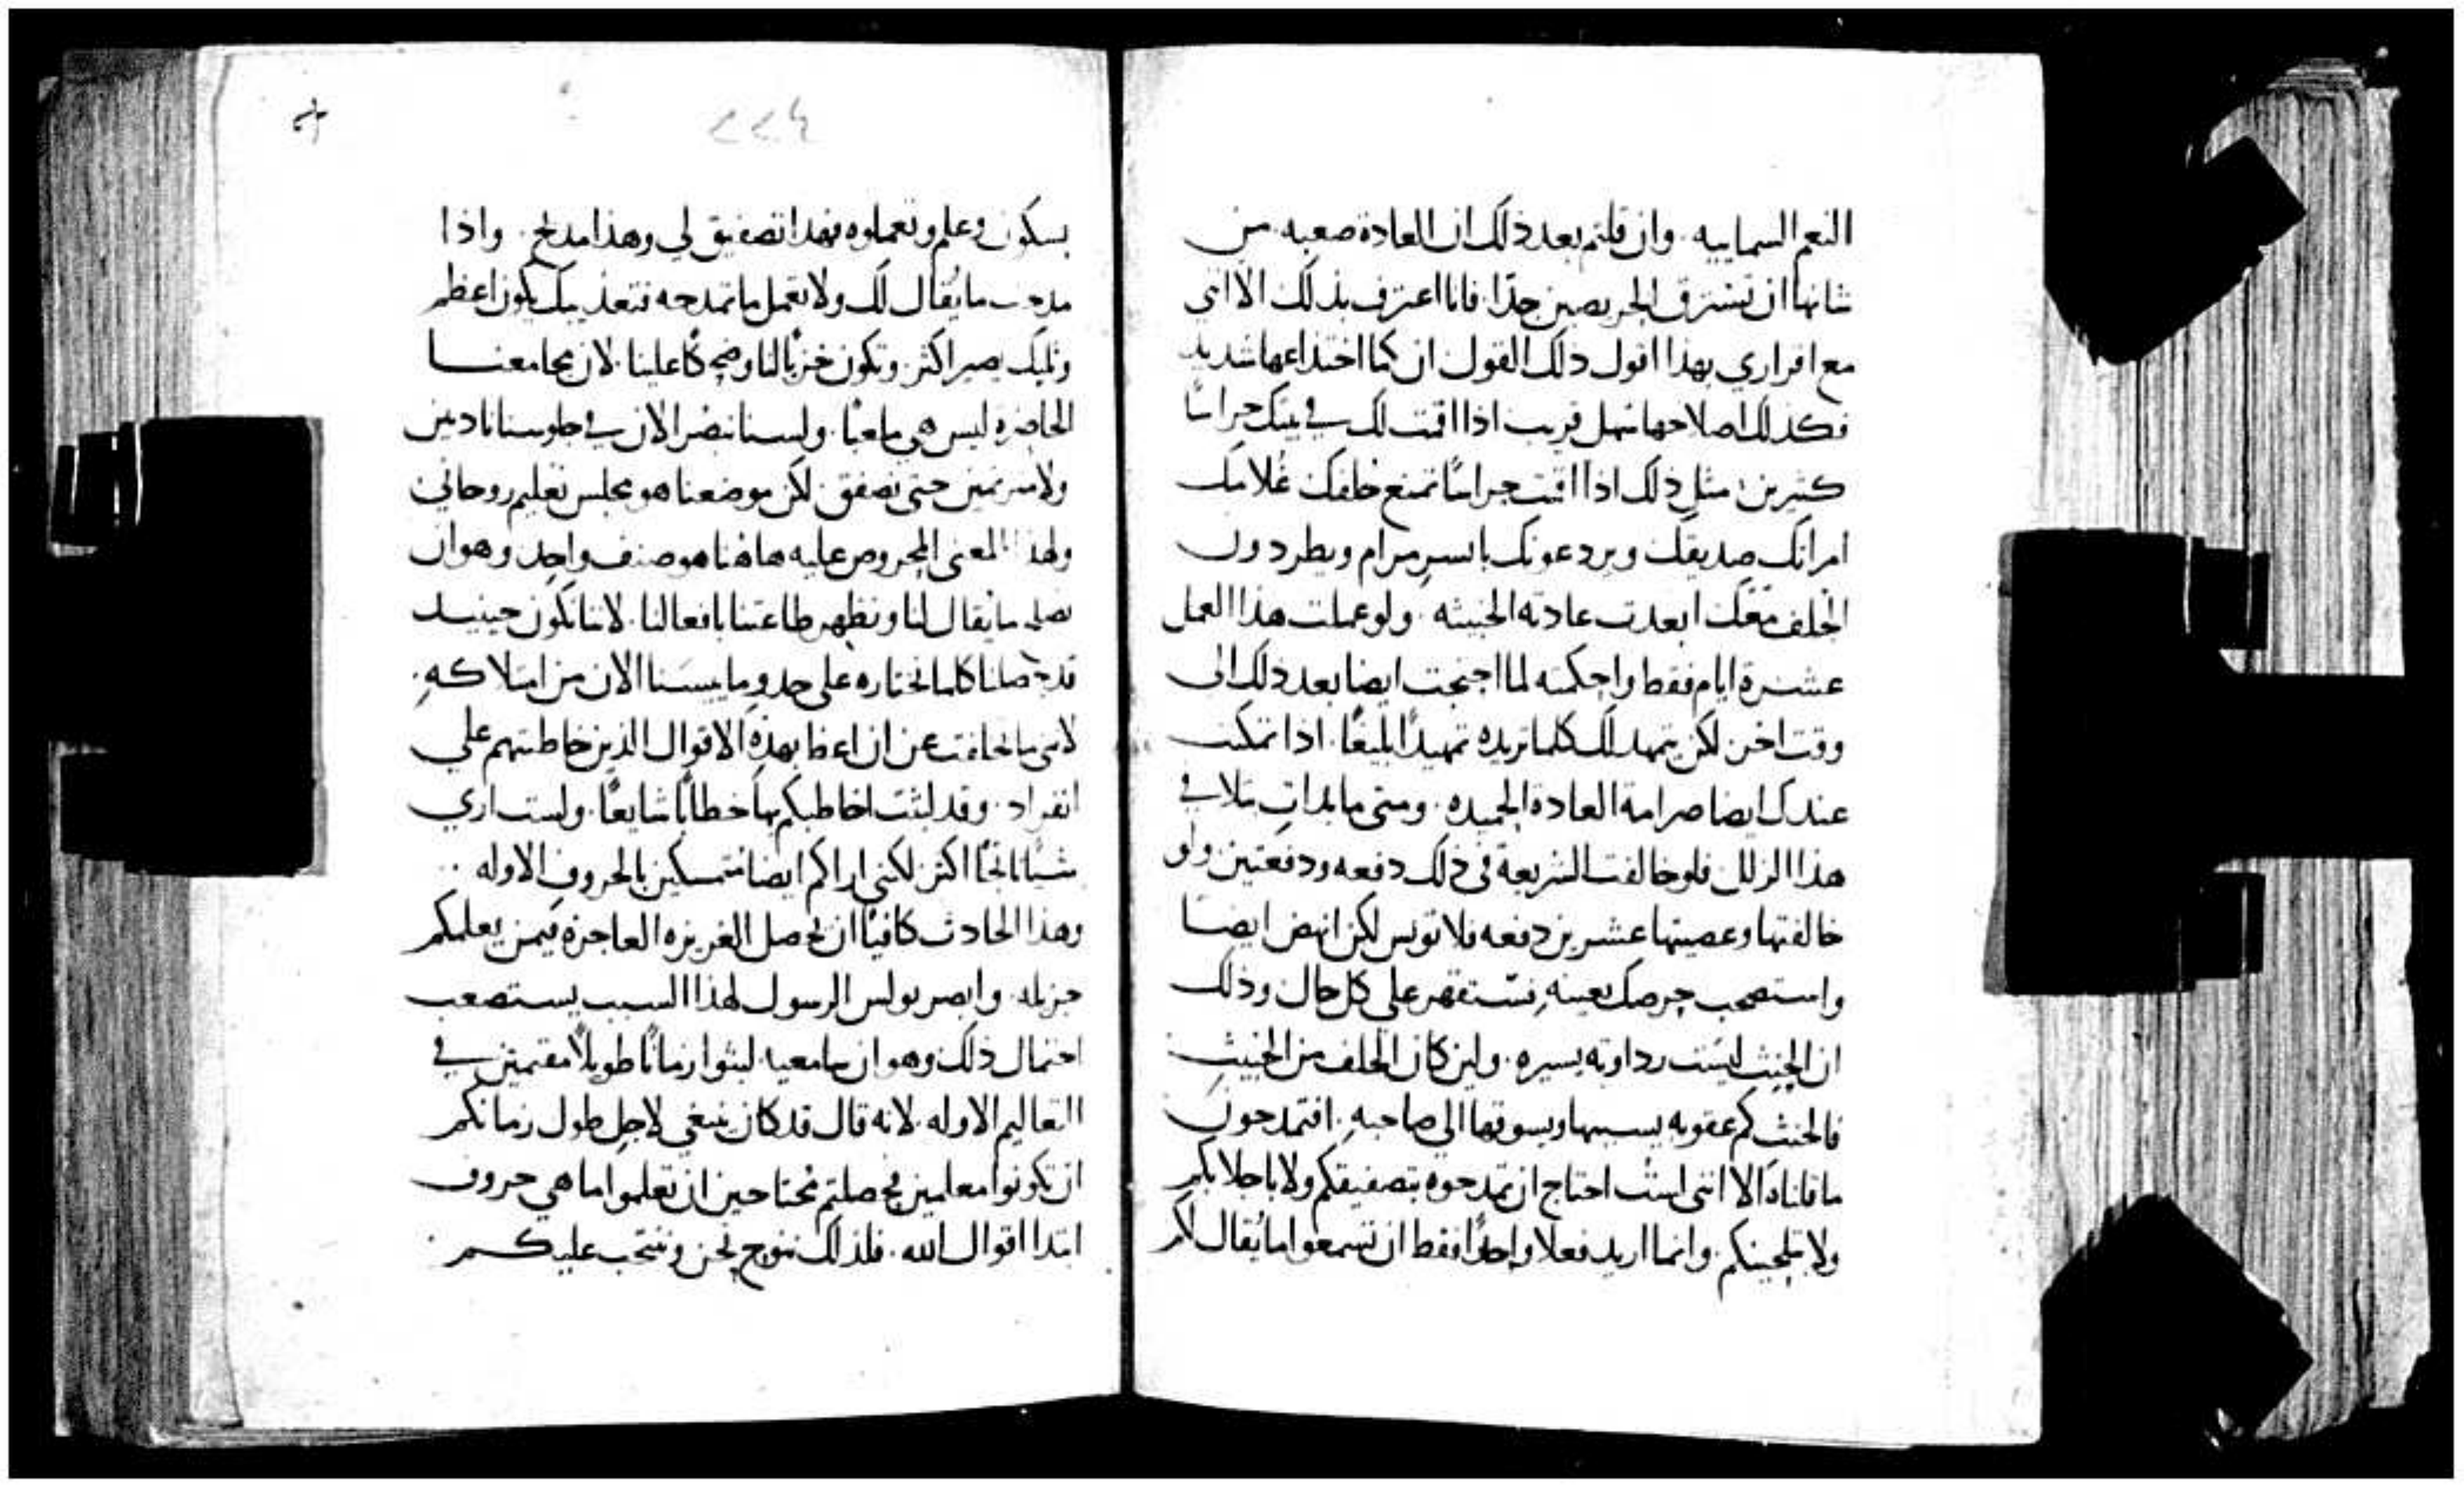 النعم السماييه. وان قلتم بعد ذلك ان العادة صعبه. من
شانها ان تسترق الحريصين جدًا. فانا اعترف بذلك الا اني
مع اقراري بهذا اقول ذلك القول ان كما اختداعها شديد
فكذلك اصلاحها سهل قريب اذا اقمت لك في بيتك حراسًا
كثيرين. مثل ذلك اذا اقمت حراسًا تمنع خلفك غلامك
امراتك صديقك ويردعونك بايسر مرام ويطردون
الحلف معك ابعدت عادته الخبيثه. ولو عملت هذا العمل
عشرة ايام فقط واحكمته لما احتجت ايضا بعد ذلك الى
وقت اخر. لكن يتمهد لك كلما تريده تمهيدًا بليغًا. اذا تمكنت
عندك ايضا صرامة العادة الحميده. ومتى ما بدات بتلافي
هذا الزلل فلو خالفت الشريعة في ذلك دفعه ودفعتين ولو
خالفتها وعصيتها عشرين دفعه فلا تويس لكن انهض ايضا
واستصحب حرصك بعينه فستقهر على كل حال وذلك
ان الحنث ليست رداوته يسيره. ولين كان الحلف من الخبيث
فالحنث كم عقوبه يسببها ويسوقها الي صاحبه. افتمدحون
ما قلناه الا انني لست احتاج ان تمدحوه بتصفيقكم ولا باجلابكم
ولا بتلحينكم. وانما اريد فعلا واحدًا فقط ان تسمعوا ما يُقال لكم
٢٢٤
بسكون وعلم وتعملوه فهذا تصفيق لي وهذا مديح. واذا
مدحت ما يُقال لك ولا تعمل ما تمدحه فتعذيبك يكون اعظم
وثلبك يصير اكثر. وتكون خزيًا لنا وضحكًا علينا. لان مجامعنا
الحاضره ليس هي ملعبًا. ولسنا نبصر الان في جلوسنا نادمين
ولا مترنمين حتى نصفق. لكن موضعنا هو مجلس تعليم روحاني
ولهذا المعنى المحروص عليه هاهنا هو صنف واحد وهو ان
نصلح ما يقال لنا ونظهر طاعتنا بافعالنا. لاننا نكون حينيذ
قد حصلنا كلما نختاره على حدو ما يسنا الان من امتلاكه.
لانني ما تخلفت عن ان اعظ بهذه الاقوال الذين خاطبتهم علي
انفراد. وقد لبثت اخاطبكم بها خطابًا شايعًا. ولست اري
شيًا ناتجًا اكثر لكني اراكم ايضا متمسكين بالحروف الاوله
وهذا الحادث كافيًا ان يحصل الغريزه العاجزه فيمن يعلمكم
جزيله. وابصر بولس الرسول لهذا السبب يستصعب
احتمال ذلك وهو ان سامعيه لبثوا زمانًا طويلًا مقيمين في
التعاليم الاوله. لانه قال قد كان ينبغي لاجل طول زمانكم
ان تكونوا معلمين فحصلتم محتاجين ان تعلموا ما هي حروف
ابتدا اقوال الله. فلذلك ننوح نحن وننتحب عليكم